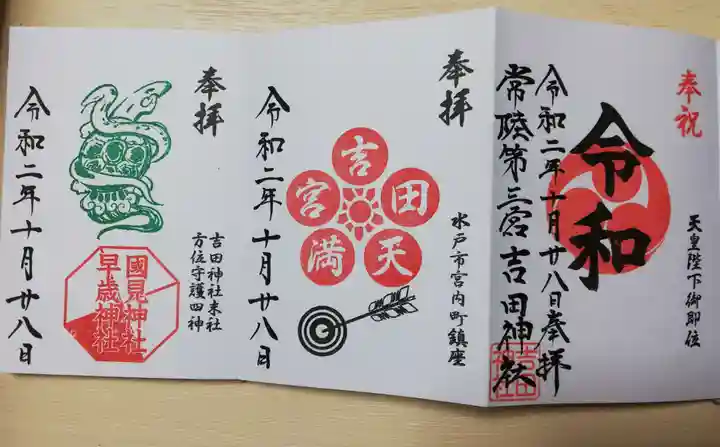 奉祝
天皇陛下御即位
令和
令和二年十月廿八日奉拝
常陸第三宮吉田神社
吉田神社
奉拝
水戸市宮内町鎮座
吉田天満宮
令和二年十月廿八日
奉拝
吉田神社末社
方位守護四神
國見神社
早歳神社
令和二年十月廿八日